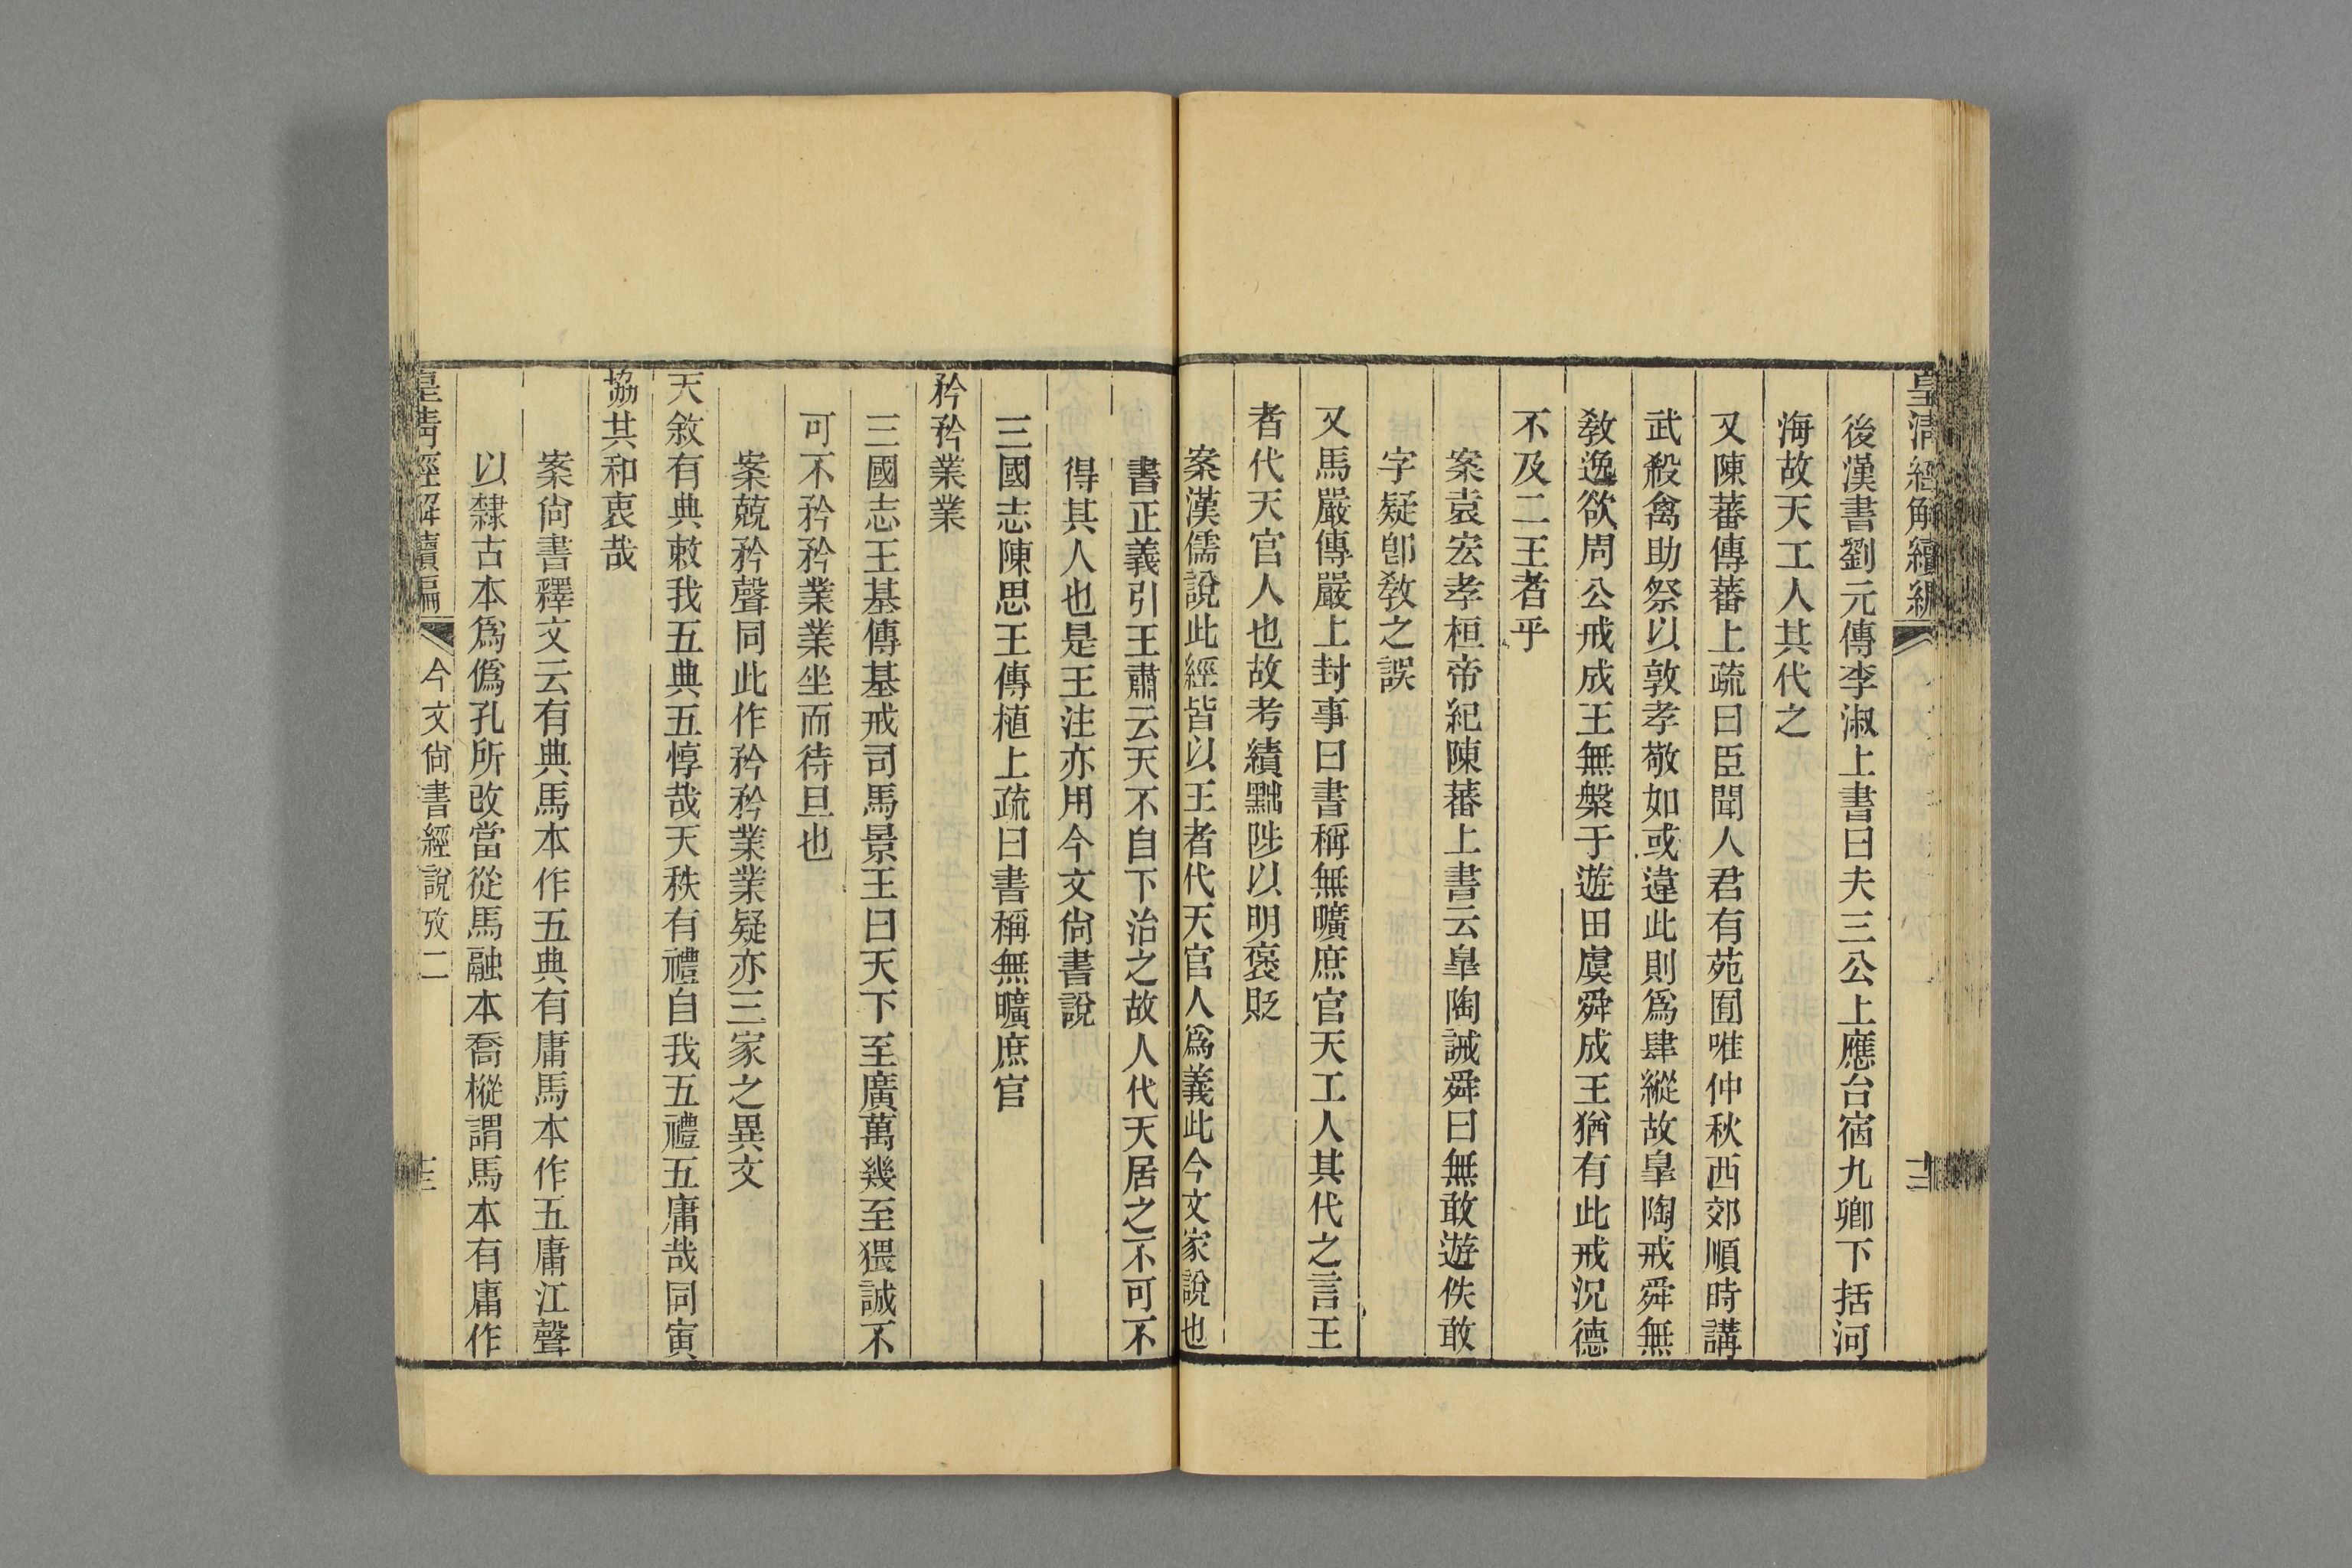 皇清經解續編
後漢書劉元傳李淑上書曰夫三公上應台宿九卿下括河
海故天工人其代之
又陳蕃傳蕃上疏曰臣聞人君有苑囿唯仲秋西郊順時講
武殺禽助祭以敦孝敬如或違此則爲肆縱故皐陶戒舜無
敎逸欲周公戒成王無槃于遊田虞舜成王猶有此戒況德
不及二王者乎
案袁宏孝桓帝紀陳蕃上書云皐陶誡舜曰無敢遊佚敢
字疑卽敎之誤
又馬嚴傳嚴上封事曰書稱無曠庶官天工人其代之言王
者代天官人也故考績黜陟以明褒貶
案漢儒說此經皆以王者代天官人爲義此今文家說也
書正義引王肅云天不自下治之故人代天居之不可不
得其人也是王注亦用今文尙書說
三國志陳思王傳植上疏曰書稱無曠庶官
矜矜業業
三國志王基傳基戒司馬景王曰天下至廣萬幾至猥誠不
可不矜矜業業坐而待旦也
案兢矜聲同此作矜矜業業疑亦三家之異文
天敘有典敕我五典五惇哉天秩有禮自我五禮五庸哉同寅
協共和衷哉
案尙書釋文云有典馬本作五典有庸馬本作五庸江聲
以隸古本爲僞孔所改當從馬融本喬樅謂馬本有庸作
皇清經解續編 今文尙書經說攷二 十三